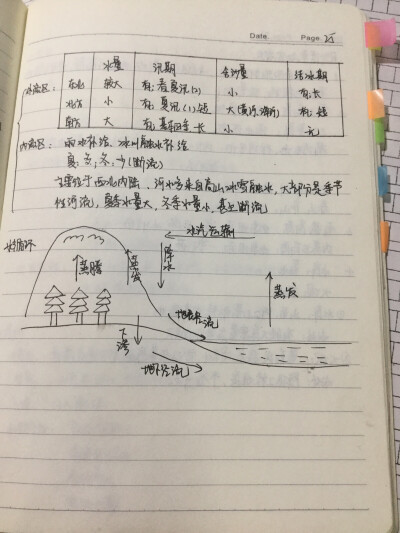 Date. Page. 25
水量 汛期 含沙量 结冰期
外流区: 东北 较大 有:春夏汛(2) 小 有:长
北方 小 有:夏汛(1)短 大 有:短
南方 大 有:夏季长 小 无
内流区: 雨水补给、冰川融水补给
夏:多;冬:少(断流)
主要位于西北内陆,河水多来自高山冰雪融水,大部分是季节
性河流,夏季水量大,冬季水量小,甚至断流
水循环
水汽运输
蒸腾 蒸发 降水 蒸发
地表径流
下渗
地下径流